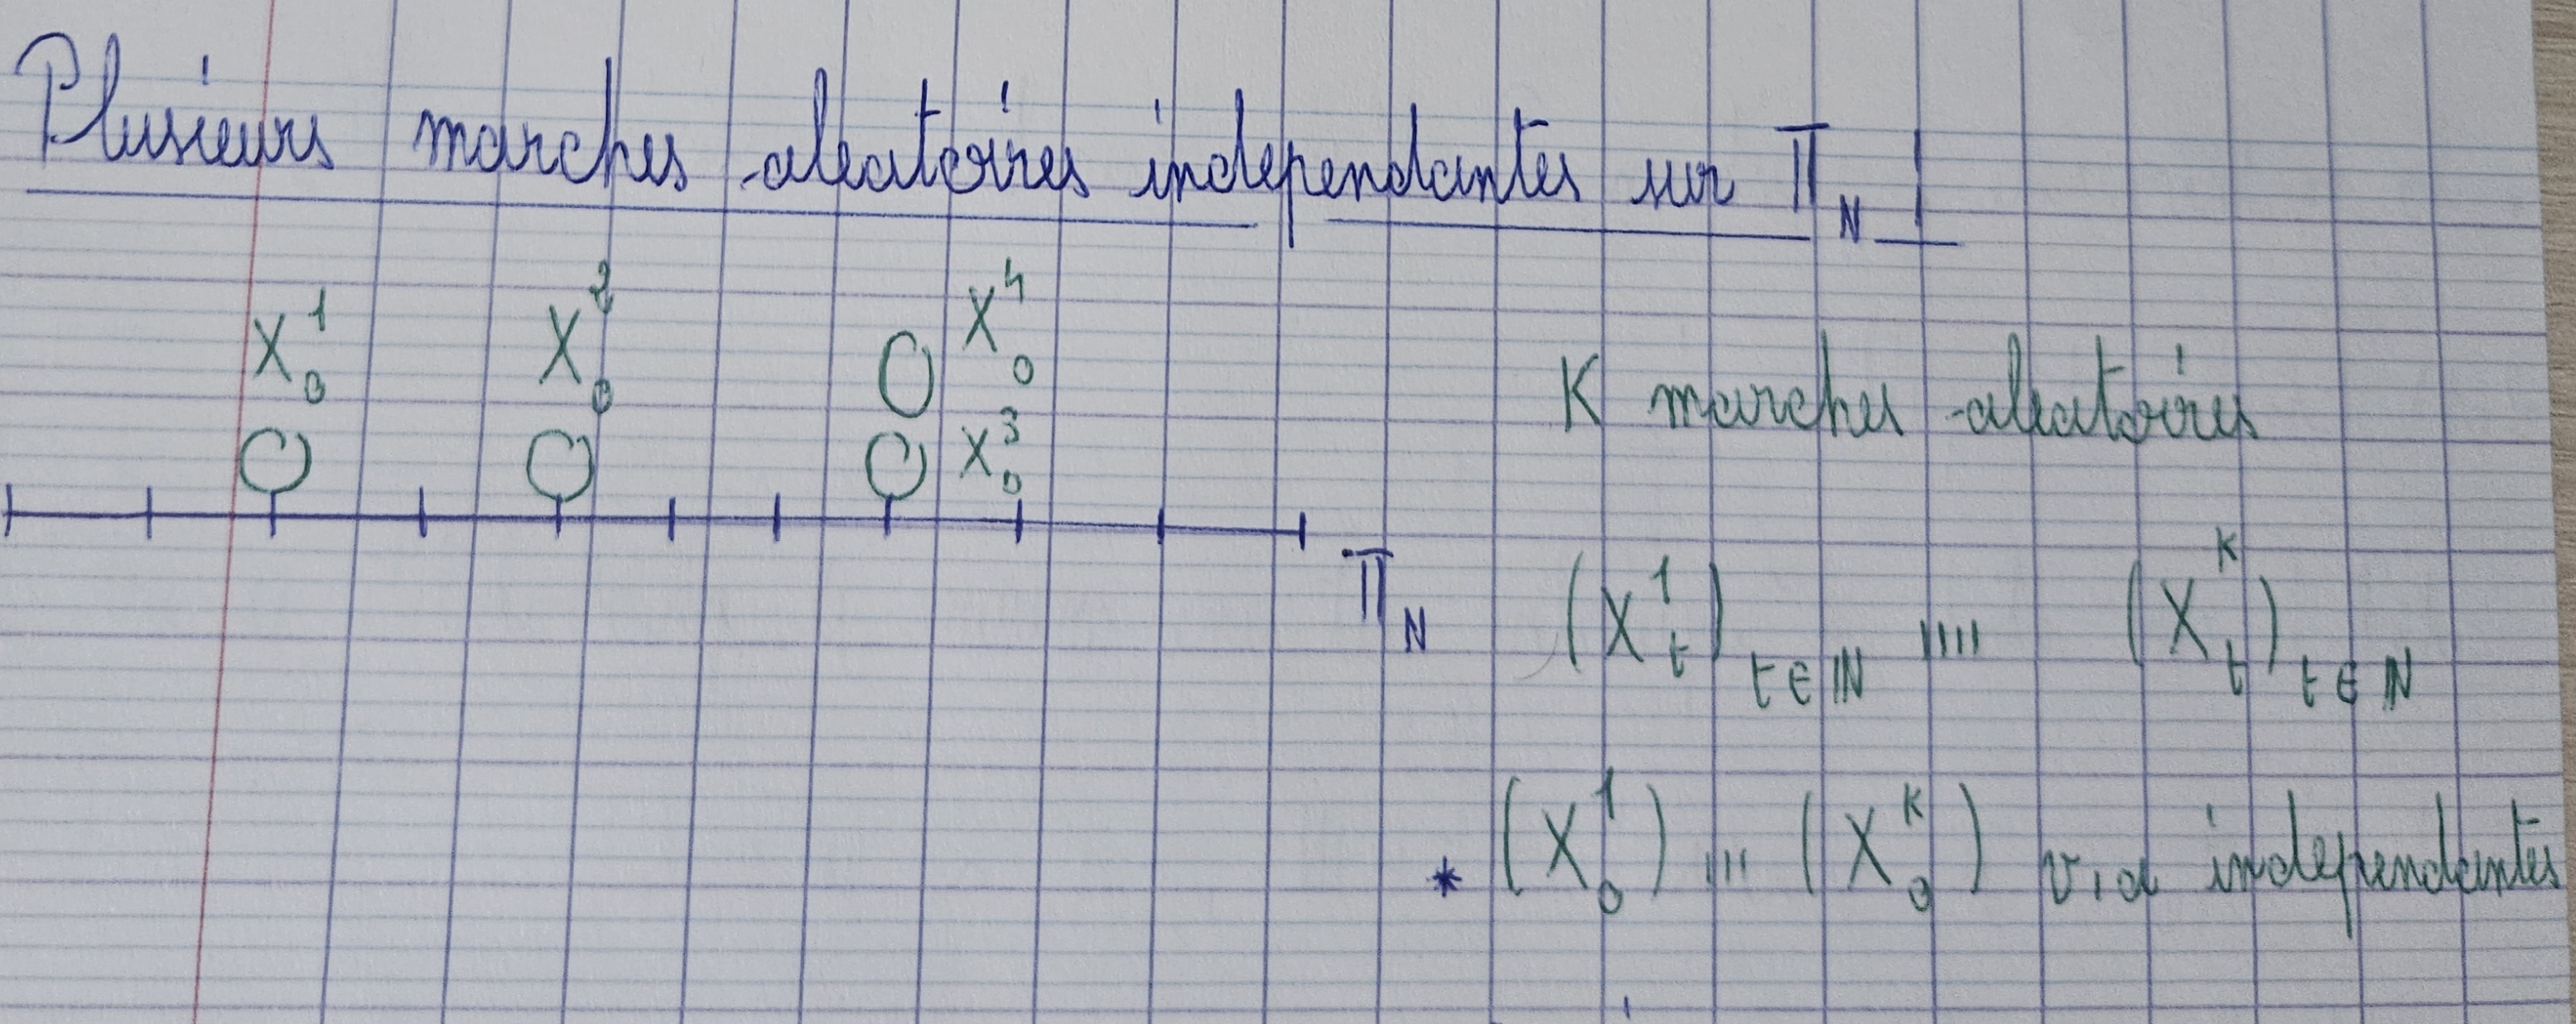 Plusieurs marches aleatoires independantes sur 𝕋_N !
X_0^1 X_0^2 X_0^4
X_0^3
𝕋_N
K marches aleatoires
(X_t^1)_{t∈ℕ} ,,,, (X_t^K)_{t∈ℕ}
* (X_0^1) ,,, (X_0^K) v.a independantes